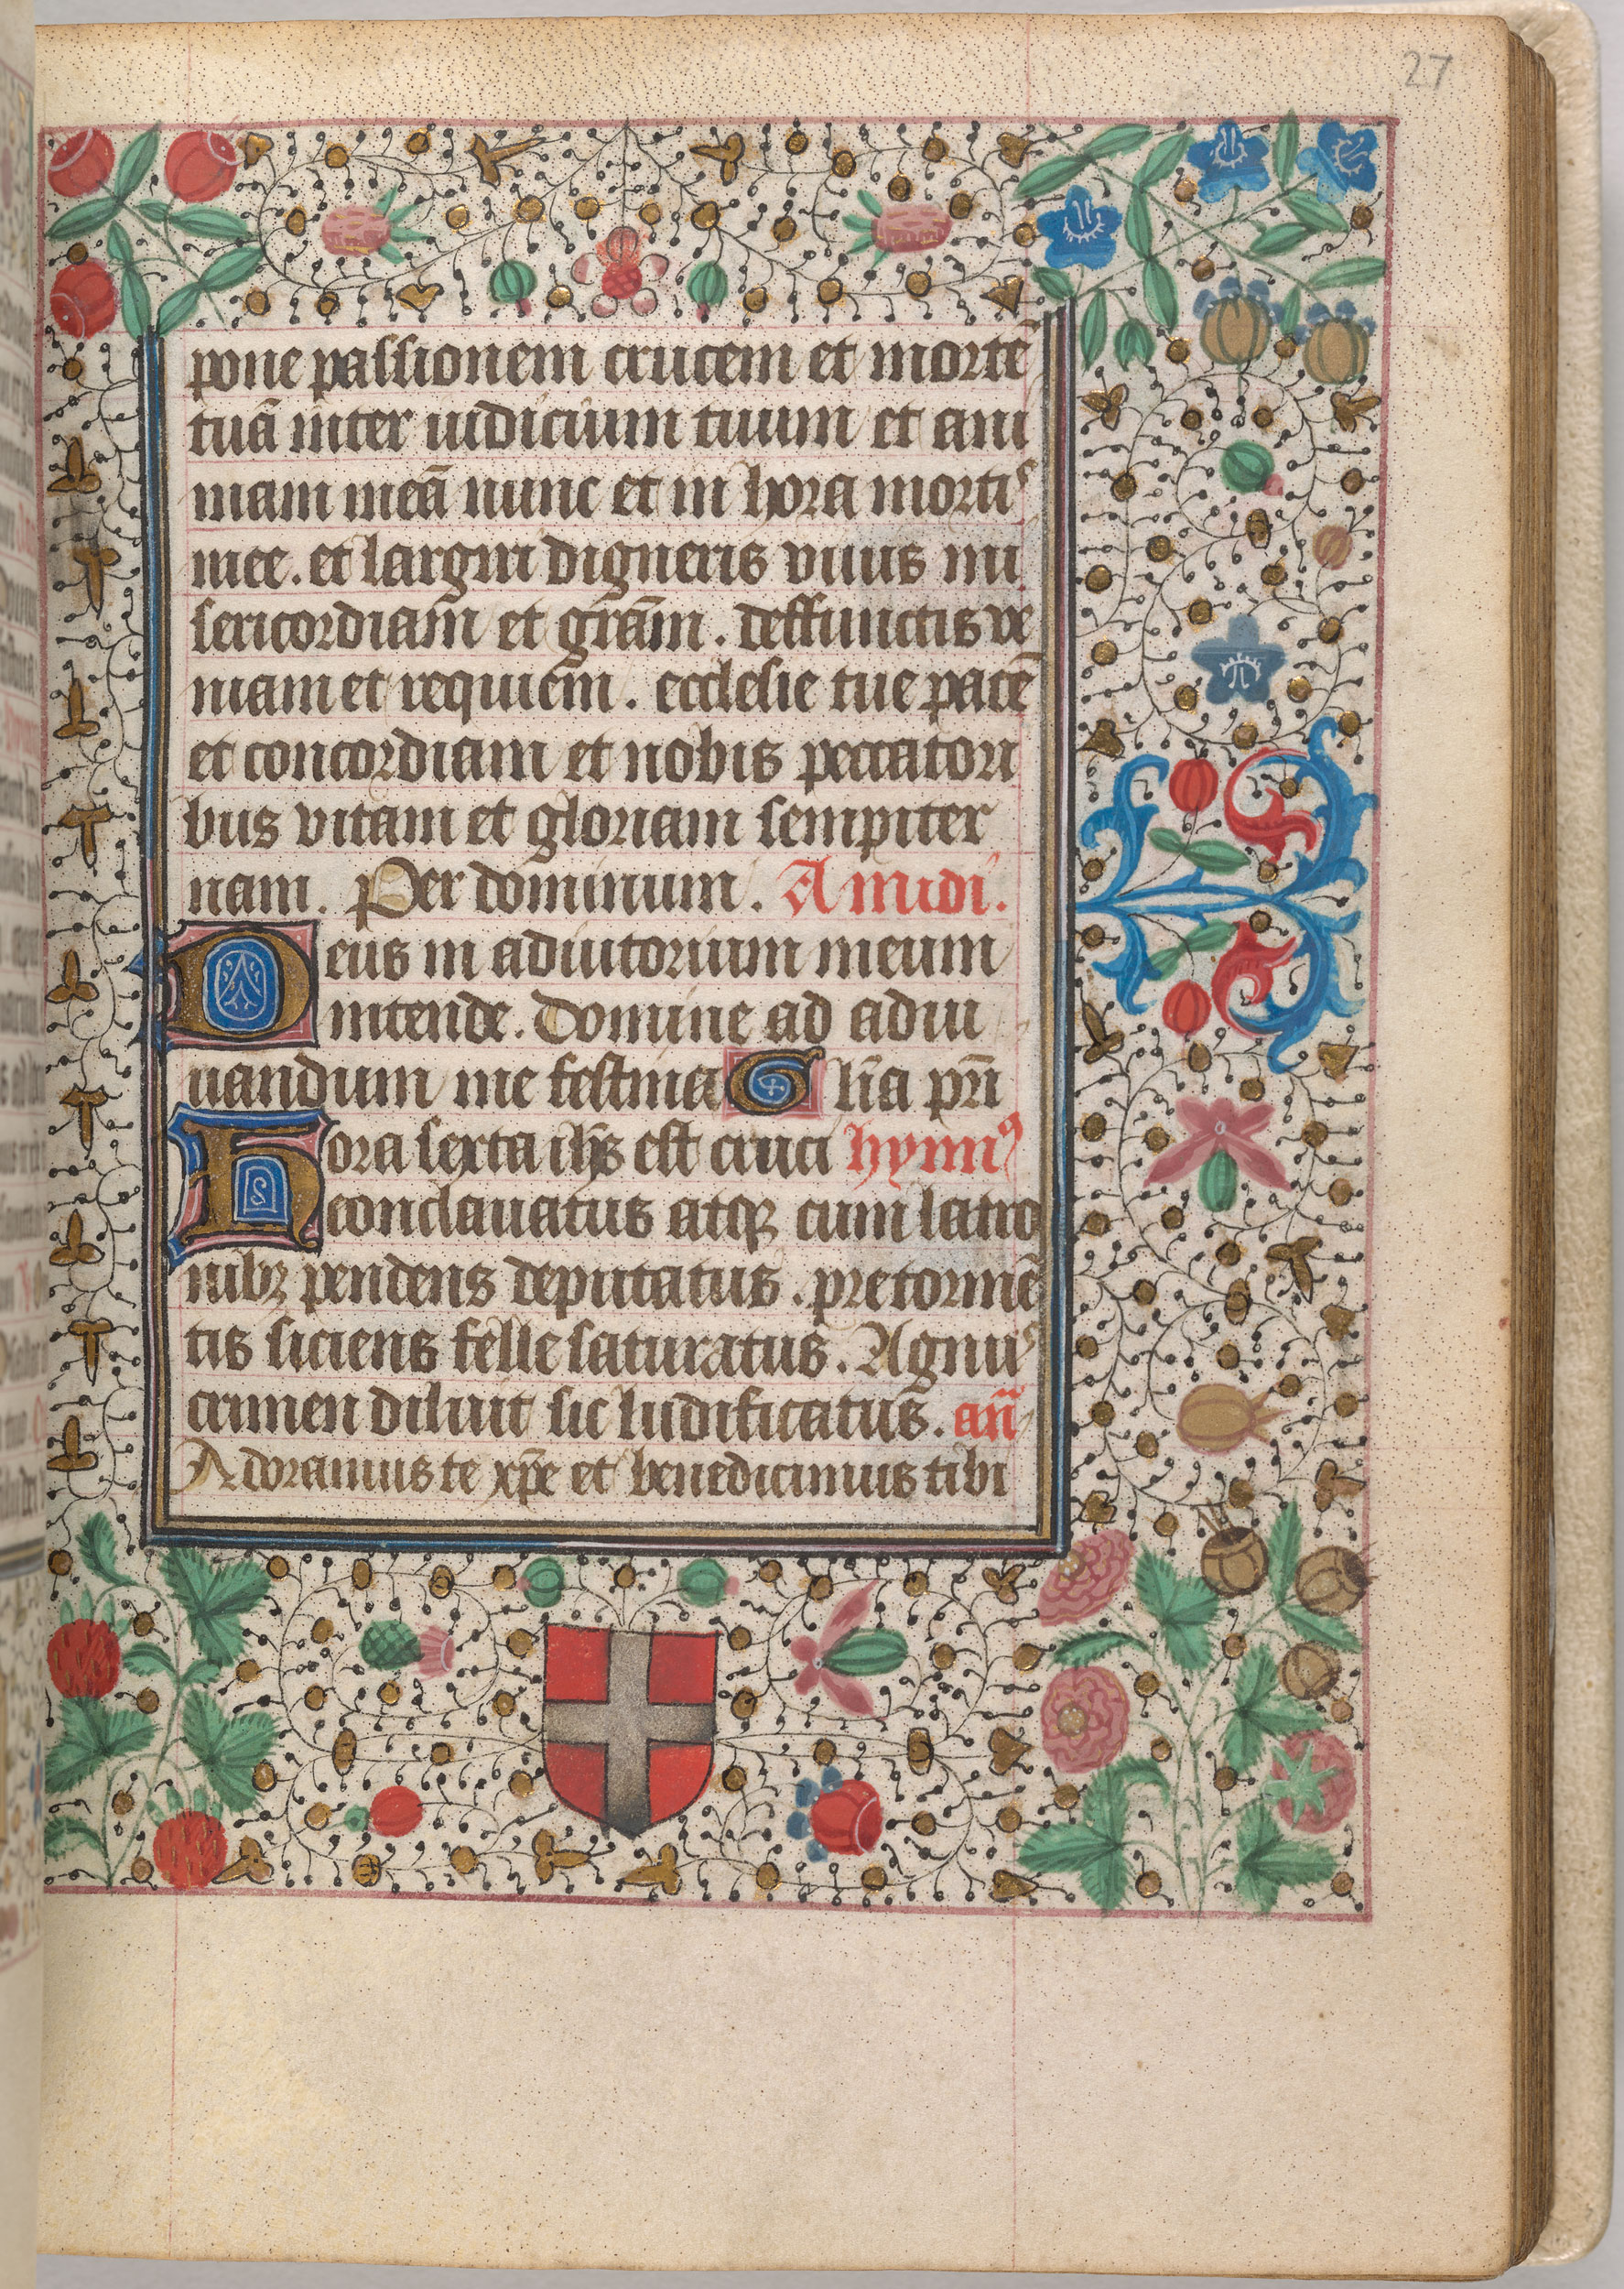 27
pone passionem crucem et mortē
tuā inter iudicium tuum et ani
mam meā nunc et in hora mortis
mee. et largiri digneris viuis mi
sericordiam et grām. deffunctis ve
niam et requiem. ecclesie tue pacē
et concordiam et nobis peccatori
bus vitam et gloriam sempiter
nam. Per dominum. A midi.
Deus in adiutorium meum
intende. Domine ad adiu
uandum me festina Glīa pr̄i
Hora sexta ih̄s est cruci hymn⁹
conclauatus atqꝫ cum latro
nibꝫ pendens deputatus. pre tormē
tis siciens felle saturatus. Agnus
crimen diluit sic ludificatus. an̄
Adoramus te xp̄e et benedicimus tibi